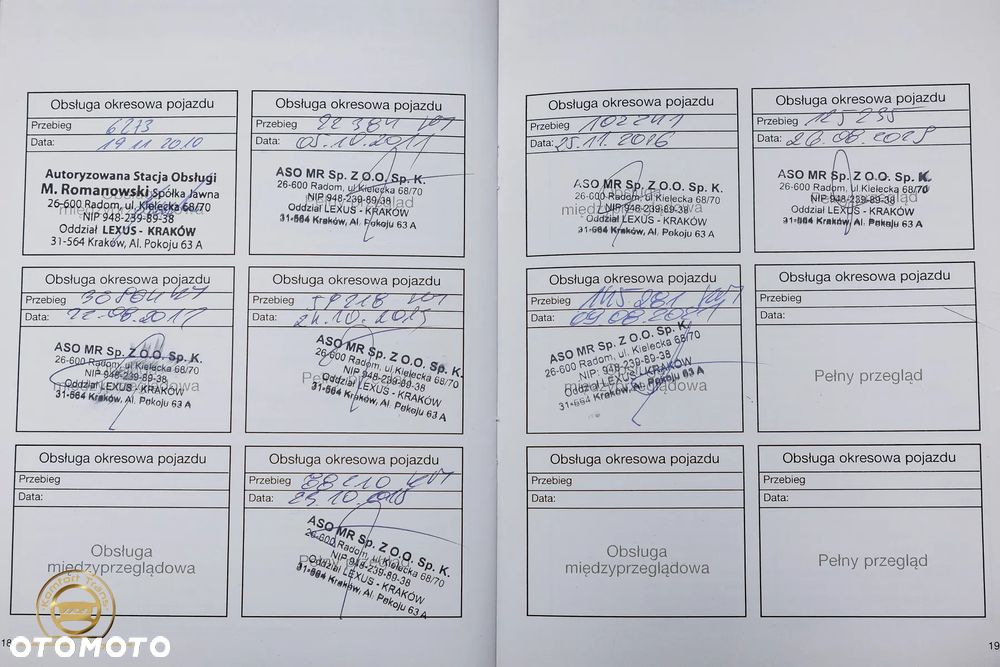 Obsługa okresowa pojazdu
Przebieg 6273
Data: 19 11 2010
Autoryzowana Stacja Obsługi
M. Romanowski Spółka Jawna
26-600 Radom, ul. Kielecka 68/70
NIP 948-239-89-38
Oddział LEXUS - KRAKÓW
31-564 Kraków, Al. Pokoju 63 A
Obsługa okresowa pojazdu
Przebieg 22 384
Data: 05.10.2011
ASO MR Sp. Z O.O. Sp. K.
26-600 Radom, ul. Kielecka 68/70
NIP 948-239-89-38
Oddział LEXUS - KRAKÓW
31-564 Kraków, Al. Pokoju 63 A
Obsługa okresowa pojazdu
Przebieg
Data:
ASO MR Sp. Z O.O. Sp. K.
26-600 Radom, ul. Kielecka 68/70
NIP 948-239-89-38
Oddział LEXUS - KRAKÓW
31-564 Kraków, Al. Pokoju 63 A
Obsługa okresowa pojazdu
Przebieg
Data:
ASO MR Sp. Z O.O. Sp. K.
26-600 Radom, ul. Kielecka 68/70
NIP 948-239-89-38
Oddział LEXUS - KRAKÓW
31-564 Kraków, Al. Pokoju 63 A
Obsługa okresowa pojazdu
Przebieg
Data:
Obsługa
międzyprzeglądowa
Obsługa okresowa pojazdu
Przebieg
Data:
ASO MR Sp. Z O.O. Sp. K.
26-600 Radom, ul. Kielecka 68/70
NIP 948-239-89-38
Oddział LEXUS - KRAKÓW
31-564 Kraków, Al. Pokoju 63 A
18
Komfort Trans
OTOMOTO
Obsługa okresowa pojazdu
Przebieg 102241
Data: 25.11.2016
ASO MR Sp. Z O.O. Sp. K.
26-600 Radom, ul. Kielecka 68/70
międzyprzeglądowa
NIP 948-239-89-38
Oddział LEXUS - KRAKÓW
31-564 Kraków, Al. Pokoju 63 A
Obsługa okresowa pojazdu
Przebieg 125 235
Data:
ASO MR Sp. Z O.O. Sp. K.
26-600 Radom, ul. Kielecka 68/70
NIP 948-239-89-38
Oddział LEXUS - KRAKÓW
31-564 Kraków, Al. Pokoju 63 A
Obsługa okresowa pojazdu
Przebieg
Data:
ASO MR Sp. Z O.O. Sp. K.
26-600 Radom, ul. Kielecka 68/70
NIP 948-239-89-38
Oddział LEXUS - KRAKÓW
31-564 Kraków, Al. Pokoju 63 A
Obsługa okresowa pojazdu
Przebieg
Data:
Pełny przegląd
Obsługa okresowa pojazdu
Przebieg
Data:
Obsługa
międzyprzeglądowa
Obsługa okresowa pojazdu
Przebieg
Data:
Pełny przegląd
19